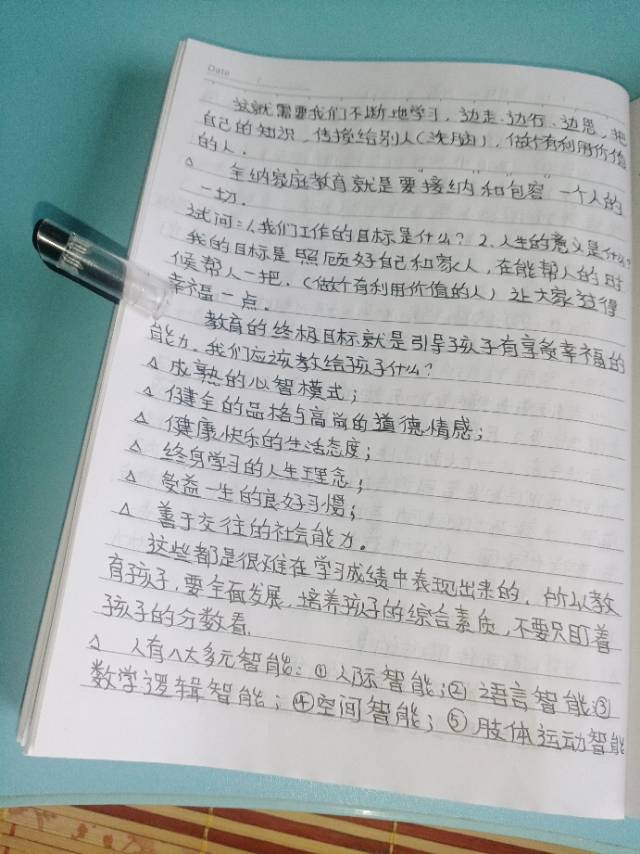 Date
这就需要我们不断地学习，边走、边看、边思，把
自己的知识、传授给别人（洗脑），做个有利用价值
的人。
全纳家庭教育就是要"接纳"和"包容"一个人的
一切。
试问：1、我们工作的目标是什么？2、人生的意义是什么？
我的目标是照顾好自己和家人，在能帮人的时
候帮人一把，（做个有利用价值的人）让大家过得
幸福一点。
教育的终极目标就是引导孩子有享受幸福的
能力。我们应该教给孩子什么？
△ 成熟的心智模式；
△ 健全的品格与高尚的道德情感；
△ 健康快乐的生活态度；
△ 终身学习的人生理念；
△ 受益一生的良好习惯；
△ 善于交往的社会能力。
这些都是很难在学习成绩中表现出来的，所以教
育孩子，要全面发展，培养孩子的综合素质，不要只盯着
孩子的分数看。
△ 人有八大多元智能：①人际智能；②语言智能；③
数学逻辑智能；④空间智能；⑤肢体运动智能